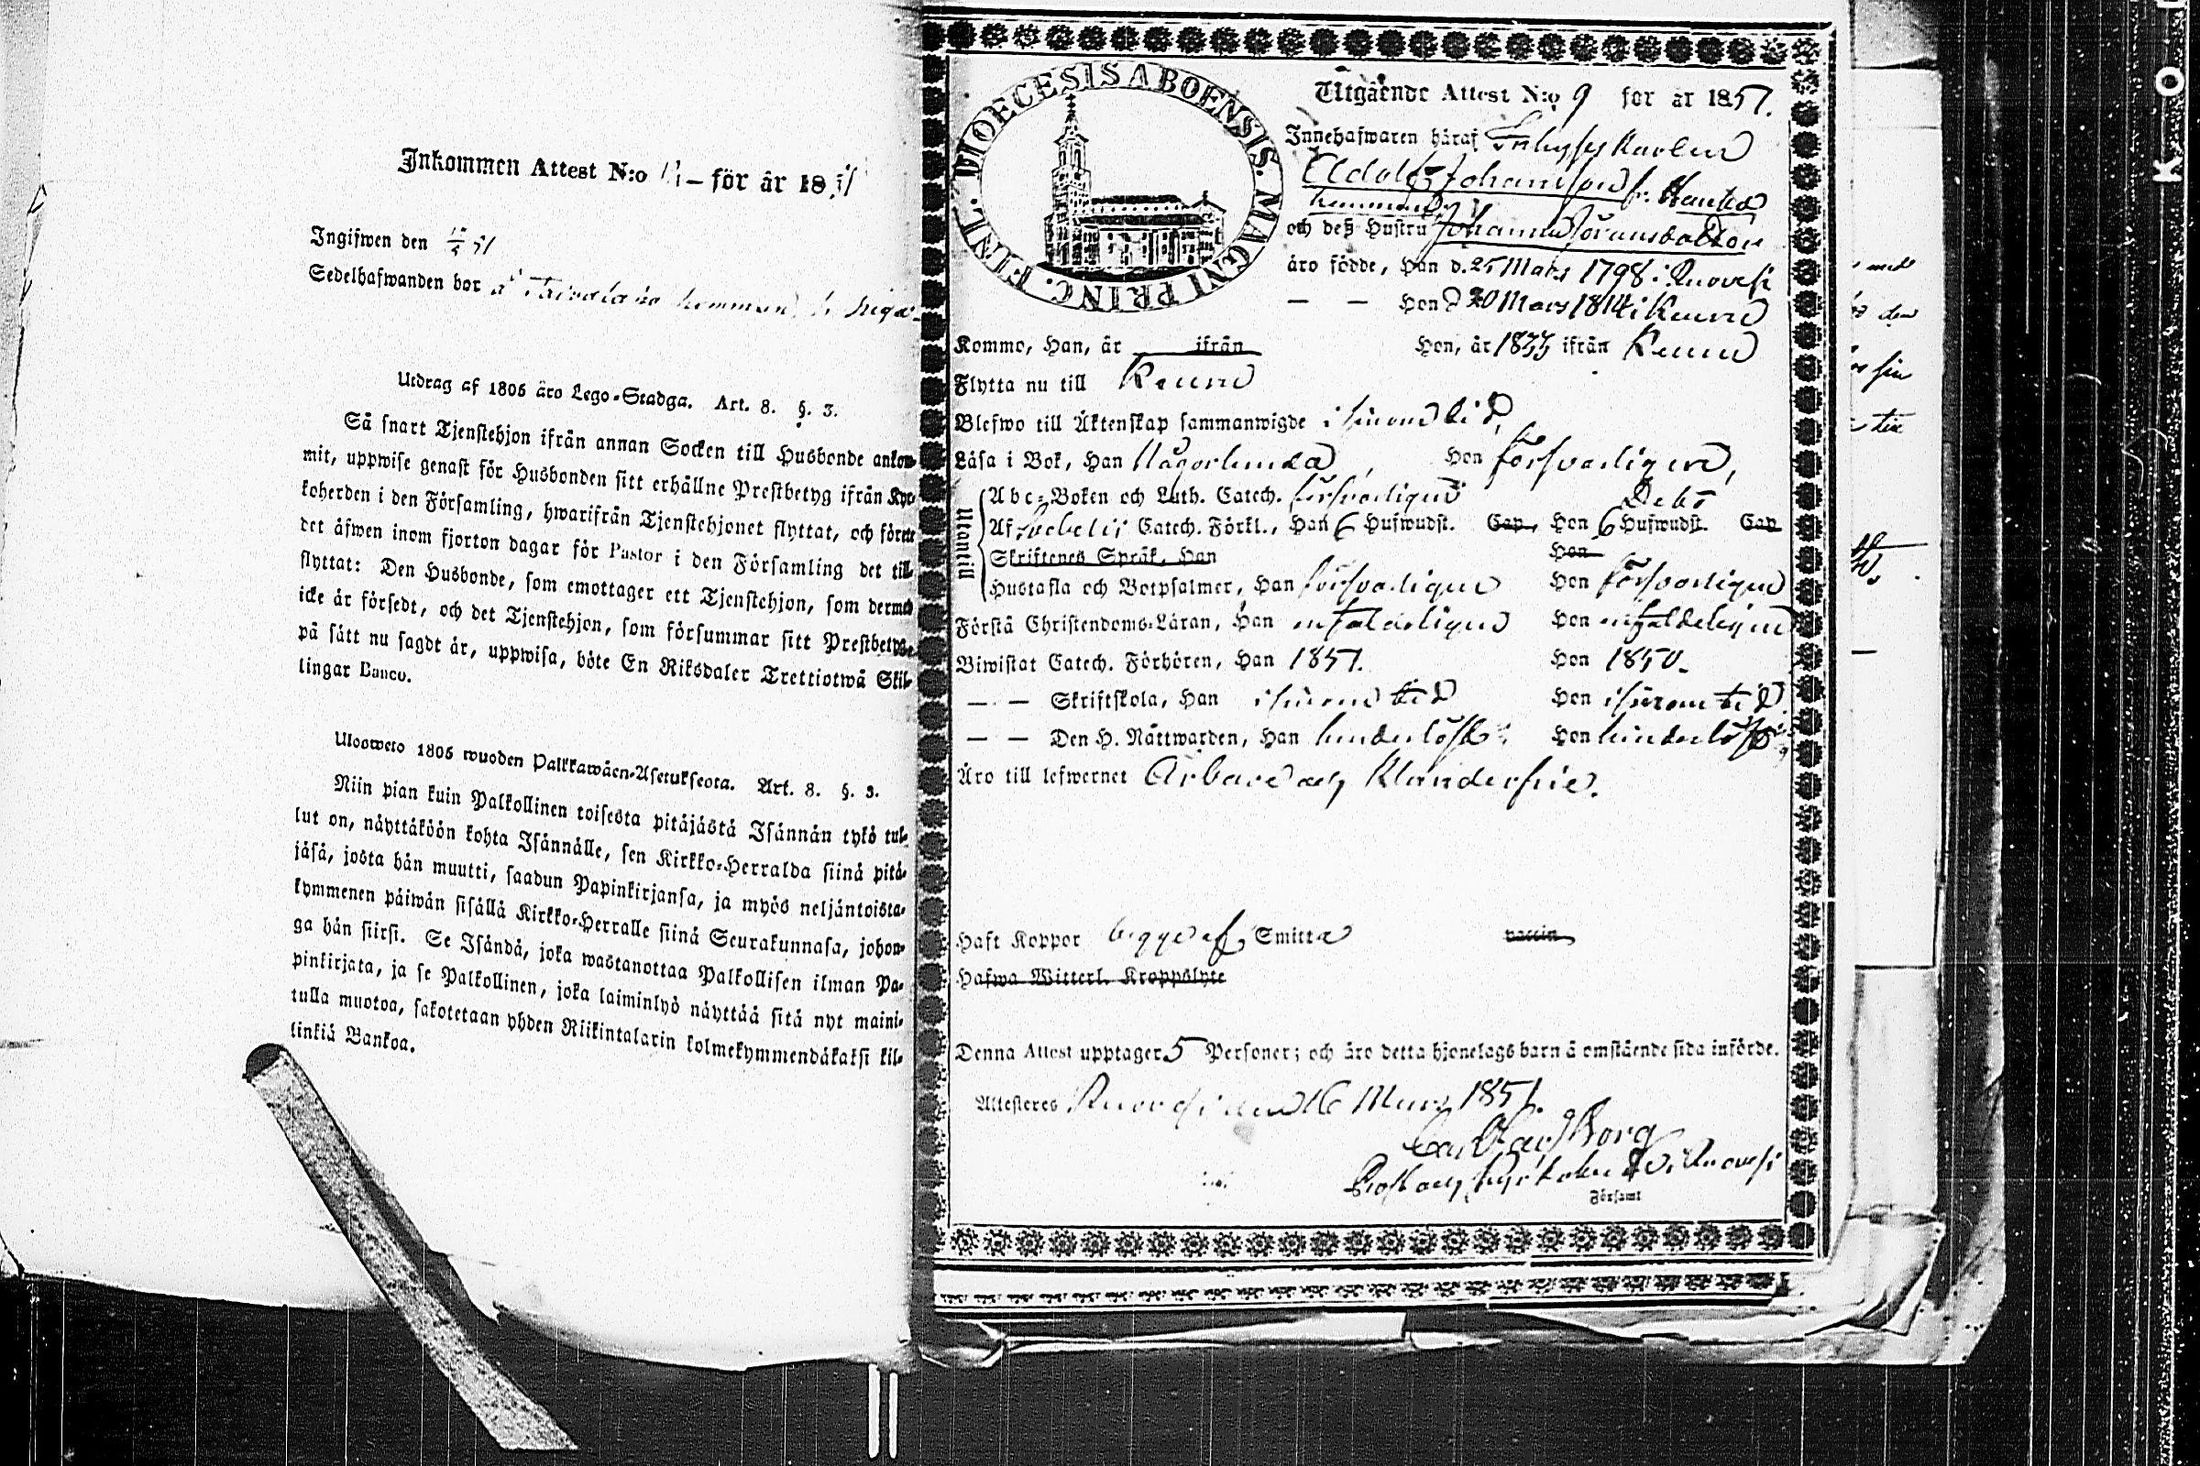 Inkommen Attest N:o för år 1851
Ingifwen den 51
Sedelhafwanden bor å
Utdrag af 1805 åro Lego-Stadga. Art. 8. §. 3.
Så snart Tjenstehjon ifrån annan Socken till Husbonde ankom-
mit, uppwise genast för Husbonden sitt erhållne Prestbetyg ifrån Kyr-
koherden i den Församling, hwarifrån Tjenstehjonet flyttat, och förete
det åfwen inom fjorton dagar för Pastor i den Församling det till-
flyttat: Den Husbonde, som emottager ett Tjenstehjon, som dermed
icke är försedt, och det Tjenstehjon, som försummar sitt Prestbetyg,
på sätt nu sagdt är, uppwisa, böte En Riksdaler Trettiotwå Skil-
lingar Banco.
Uloosweto 1805 wuoden Palkkawäen-Asetuksesta. Art. 8. §. 3.
Niin pian kuin Palkollinen toisesta pitäjästä Isännän tykö tul-
lut on, näyttäköön kohta Isännälle, sen Kirkko-Herralda siinä pitä-
jäsä, josta hän muutti, saadun Papinkirjansa, ja myös neljäntoista-
kymmenen päiwän sisällä Kirkko-Herralle siinä Seurakunnasa, johon-
ga hän siirsi. Se Isändä, joka wastanottaa Palkollisen ilman Pa-
pinkirjata, ja se Palkollinen, joka laiminlyö näyttää sitä nyt maini-
tulla muotoa, sakotetaan yhden Riikintalarin kolmekymmendäkaksi kil-
linkiä Bankoa.
DIOECESIS ABOENSIS. MAGNI PRINC. FINL.
Utgående Attest N:o 9 för år 1851.
Innehafwaren häraf Inhyseskarlen
Adolf Johansson fr.
och deß Hustru Johanna Göransdotter
äro födde, Han d. 25 Mars 1798 i Ruovesi
— — Hon d 20 Mars 1814 i Keuru
Kommo, Han, år ifrån Hon, år 1833 ifrån Keuru
Flytta nu till Keuru
Blefwo till Äktenskap sammanwigde i sinom tid
Läsa i Bok, Han Någorlunda, Hon försvarligen,
Utantill
Abc-Boken och Luth. Catech. försvarligen Dito
Af Svebelii Catech. Förkl., Han 6 Hufwudst. Cap., Hon 6 Hufwudst. Cap
Skriftenes Språk, Han Hon
Hustafla och Botpsalmer, Han försvarligen Hon försvarligen
Förstå Christendoms-Läran, Han enfaldeligen Hon enfaldeligen
Biwistat Catech. Förhören, Han 1851. Hon 1850.
— — Skriftskola, Han i sinom tid Hon i sinom tid
— — Den H. Nattwarden, Han hinderlöst Hon hinderlöst
Äro till lefwernet Ärbare och Klanderfrie.
Haft Koppor begge af Smitta vaccin
Hafwa Witterl. Kroppslyte
Denna Attest upptager 5 Personer; och äro detta hjonelags barn å omstående sida införde.
Attesteres Ruovesi den 16 Mars 1851.
Borg
Prost och Kyrkoherde i Ruovesi
Församl
KOD